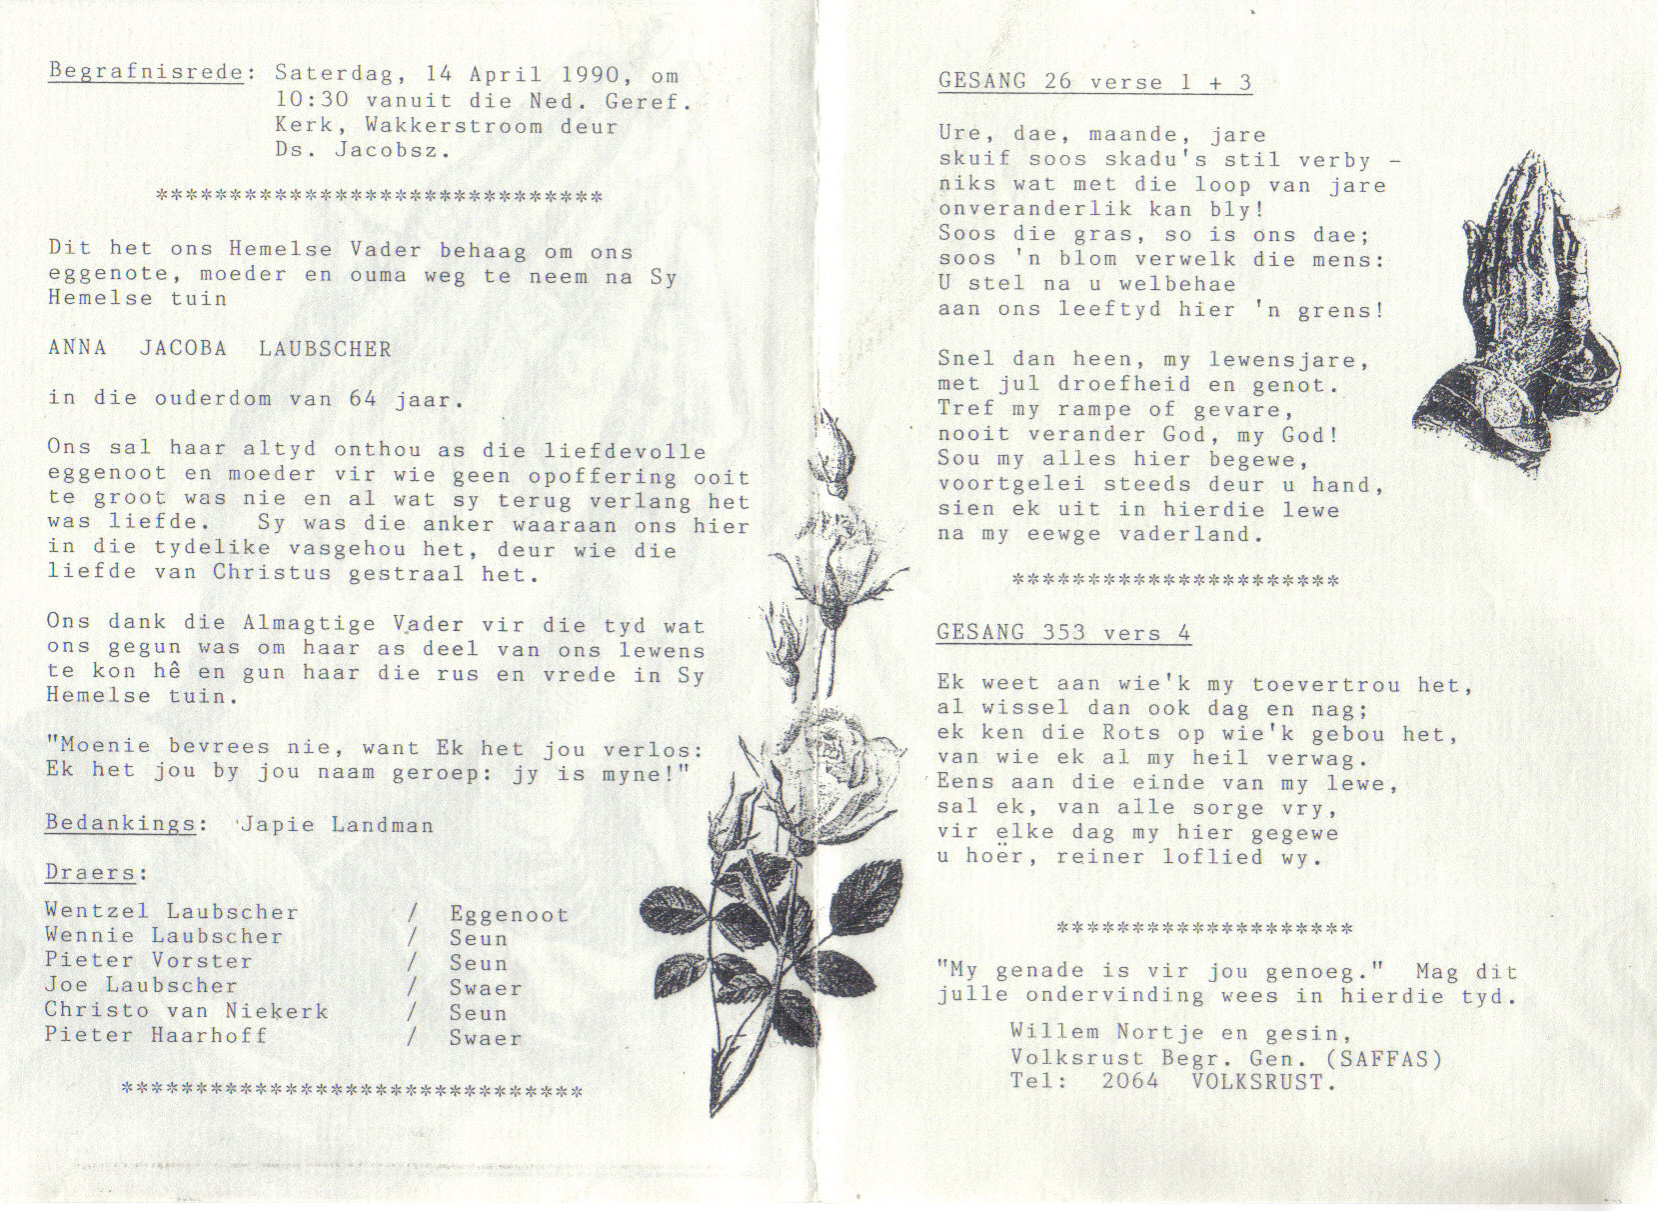 Begrafnisrede: Saterdag, 14 April 1990, om
10:30 vanuit die Ned. Geref.
Kerk, Wakkerstroom deur
Ds. Jacobsz.
******************************
Dit het ons Hemelse Vader behaag om ons
eggenote, moeder en ouma weg te neem na Sy
Hemelse tuin
ANNA JACOBA LAUBSCHER
in die ouderdom van 64 jaar.
Ons sal haar altyd onthou as die liefdevolle
eggenoot en moeder vir wie geen opoffering ooit
te groot was nie en al wat sy terug verlang het
was liefde. Sy was die anker waaraan ons hier
in die tydelike vasgehou het, deur wie die
liefde van Christus gestraal het.
Ons dank die Almagtige Vader vir die tyd wat
ons gegun was om haar as deel van ons lewens
te kon hê en gun haar die rus en vrede in Sy
Hemelse tuin.
"Moenie bevrees nie, want Ek het jou verlos:
Ek het jou by jou naam geroep: jy is myne!"
Bedankings: Japie Landman
Draers:
Wentzel Laubscher / Eggenoot
Wennie Laubscher / Seun
Pieter Vorster / Seun
Joe Laubscher / Swaer
Christo van Niekerk / Seun
Pieter Haarhoff / Swaer
*******************************
GESANG 26 verse 1 + 3
Ure, dae, maande, jare
skuif soos skadu's stil verby -
niks wat met die loop van jare
onveranderlik kan bly!
Soos die gras, so is ons dae;
soos 'n blom verwelk die mens:
U stel na u welbehae
aan ons leeftyd hier 'n grens!
Snel dan heen, my lewensjare,
met jul droefheid en genot.
Tref my rampe of gevare,
nooit verander God, my God!
Sou my alles hier begewe,
voortgelei steeds deur u hand,
sien ek uit in hierdie lewe
na my eewge vaderland.
**********************
GESANG 353 vers 4
Ek weet aan wie'k my toevertrou het,
al wissel dan ook dag en nag;
ek ken die Rots op wie'k gebou het,
van wie ek al my heil verwag.
Eens aan die einde van my lewe,
sal ek, van alle sorge vry,
vir elke dag my hier gegewe
u hoër, reiner loflied wy.
********************
"My genade is vir jou genoeg." Mag dit
julle ondervinding wees in hierdie tyd.
Willem Nortje en gesin,
Volksrust Begr. Gen. (SAFFAS)
Tel: 2064 VOLKSRUST.